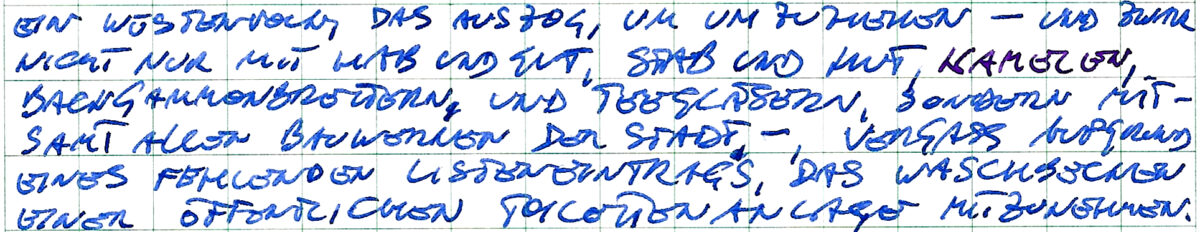 EIN WÜSTENVOLK, DAS AUSZOG, UM UMZUZIEHEN – UND ZWAR
NICHT NUR MIT HAB UND GUT, STAB UND HUT, KAMELEN,
BACKGAMMONBRETTERN, UND TEEGLÄSERN, SONDERN MIT-
SAMT ALLEN BAUWERKEN DER STADT, –, VERGASS AUFGRUND
EINES FEHLENDEN LISTENEINTRAGS, DAS WASCHBECKEN
EINER ÖFFENTLICHEN TOILETTENANLAGE MITZUNEHMEN.